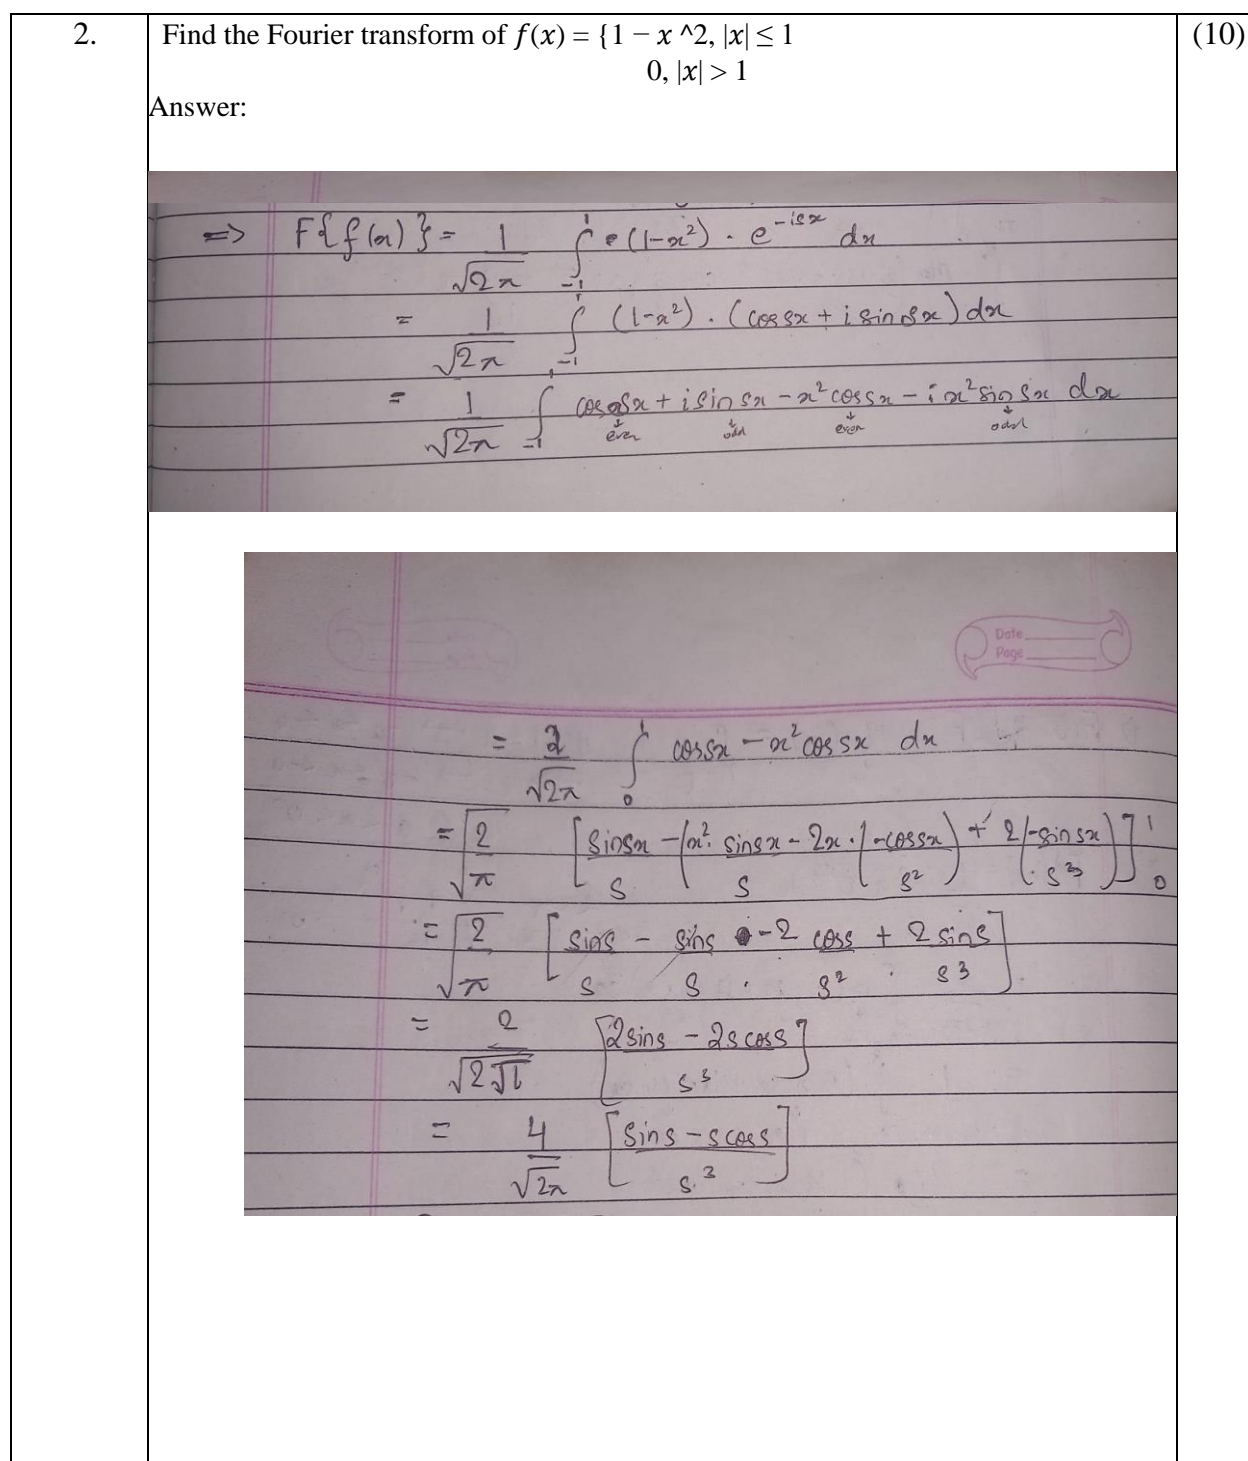 2. Find the Fourier transform of f(x) = {1 − x ^2, |x| ≤ 1 (10)
0, |x| > 1
Answer:
=> F{f(x)} = 1/√2π ∫_{-1}^{1} (1-x²) . e^{-isx} dx
= 1/√2π ∫_{-1}^{1} (1-x²) . (cos sx + i sin sx) dx
= 1/√2π ∫_{-1}^{1} cos sx + i sin sx - x² cos sx - i x² sin sx dx
↓ even ↓ odd ↓ even ↓ odd
Date
Page
= 2/√2π ∫_0^1 cos sx - x² cos sx dx
= √2/π [sin sx/s - (x² . sin sx/s - 2x . (-cos sx/s²) + 2(-sin sx/s³))]_0^1
= √2/π [sin s/s - sin s/s - 2 cos s/s² + 2 sin s/s³]
= 2/√2π [2 sin s - 2s cos s/s³]
= 4/√2π [sin s - s cos s/s³]